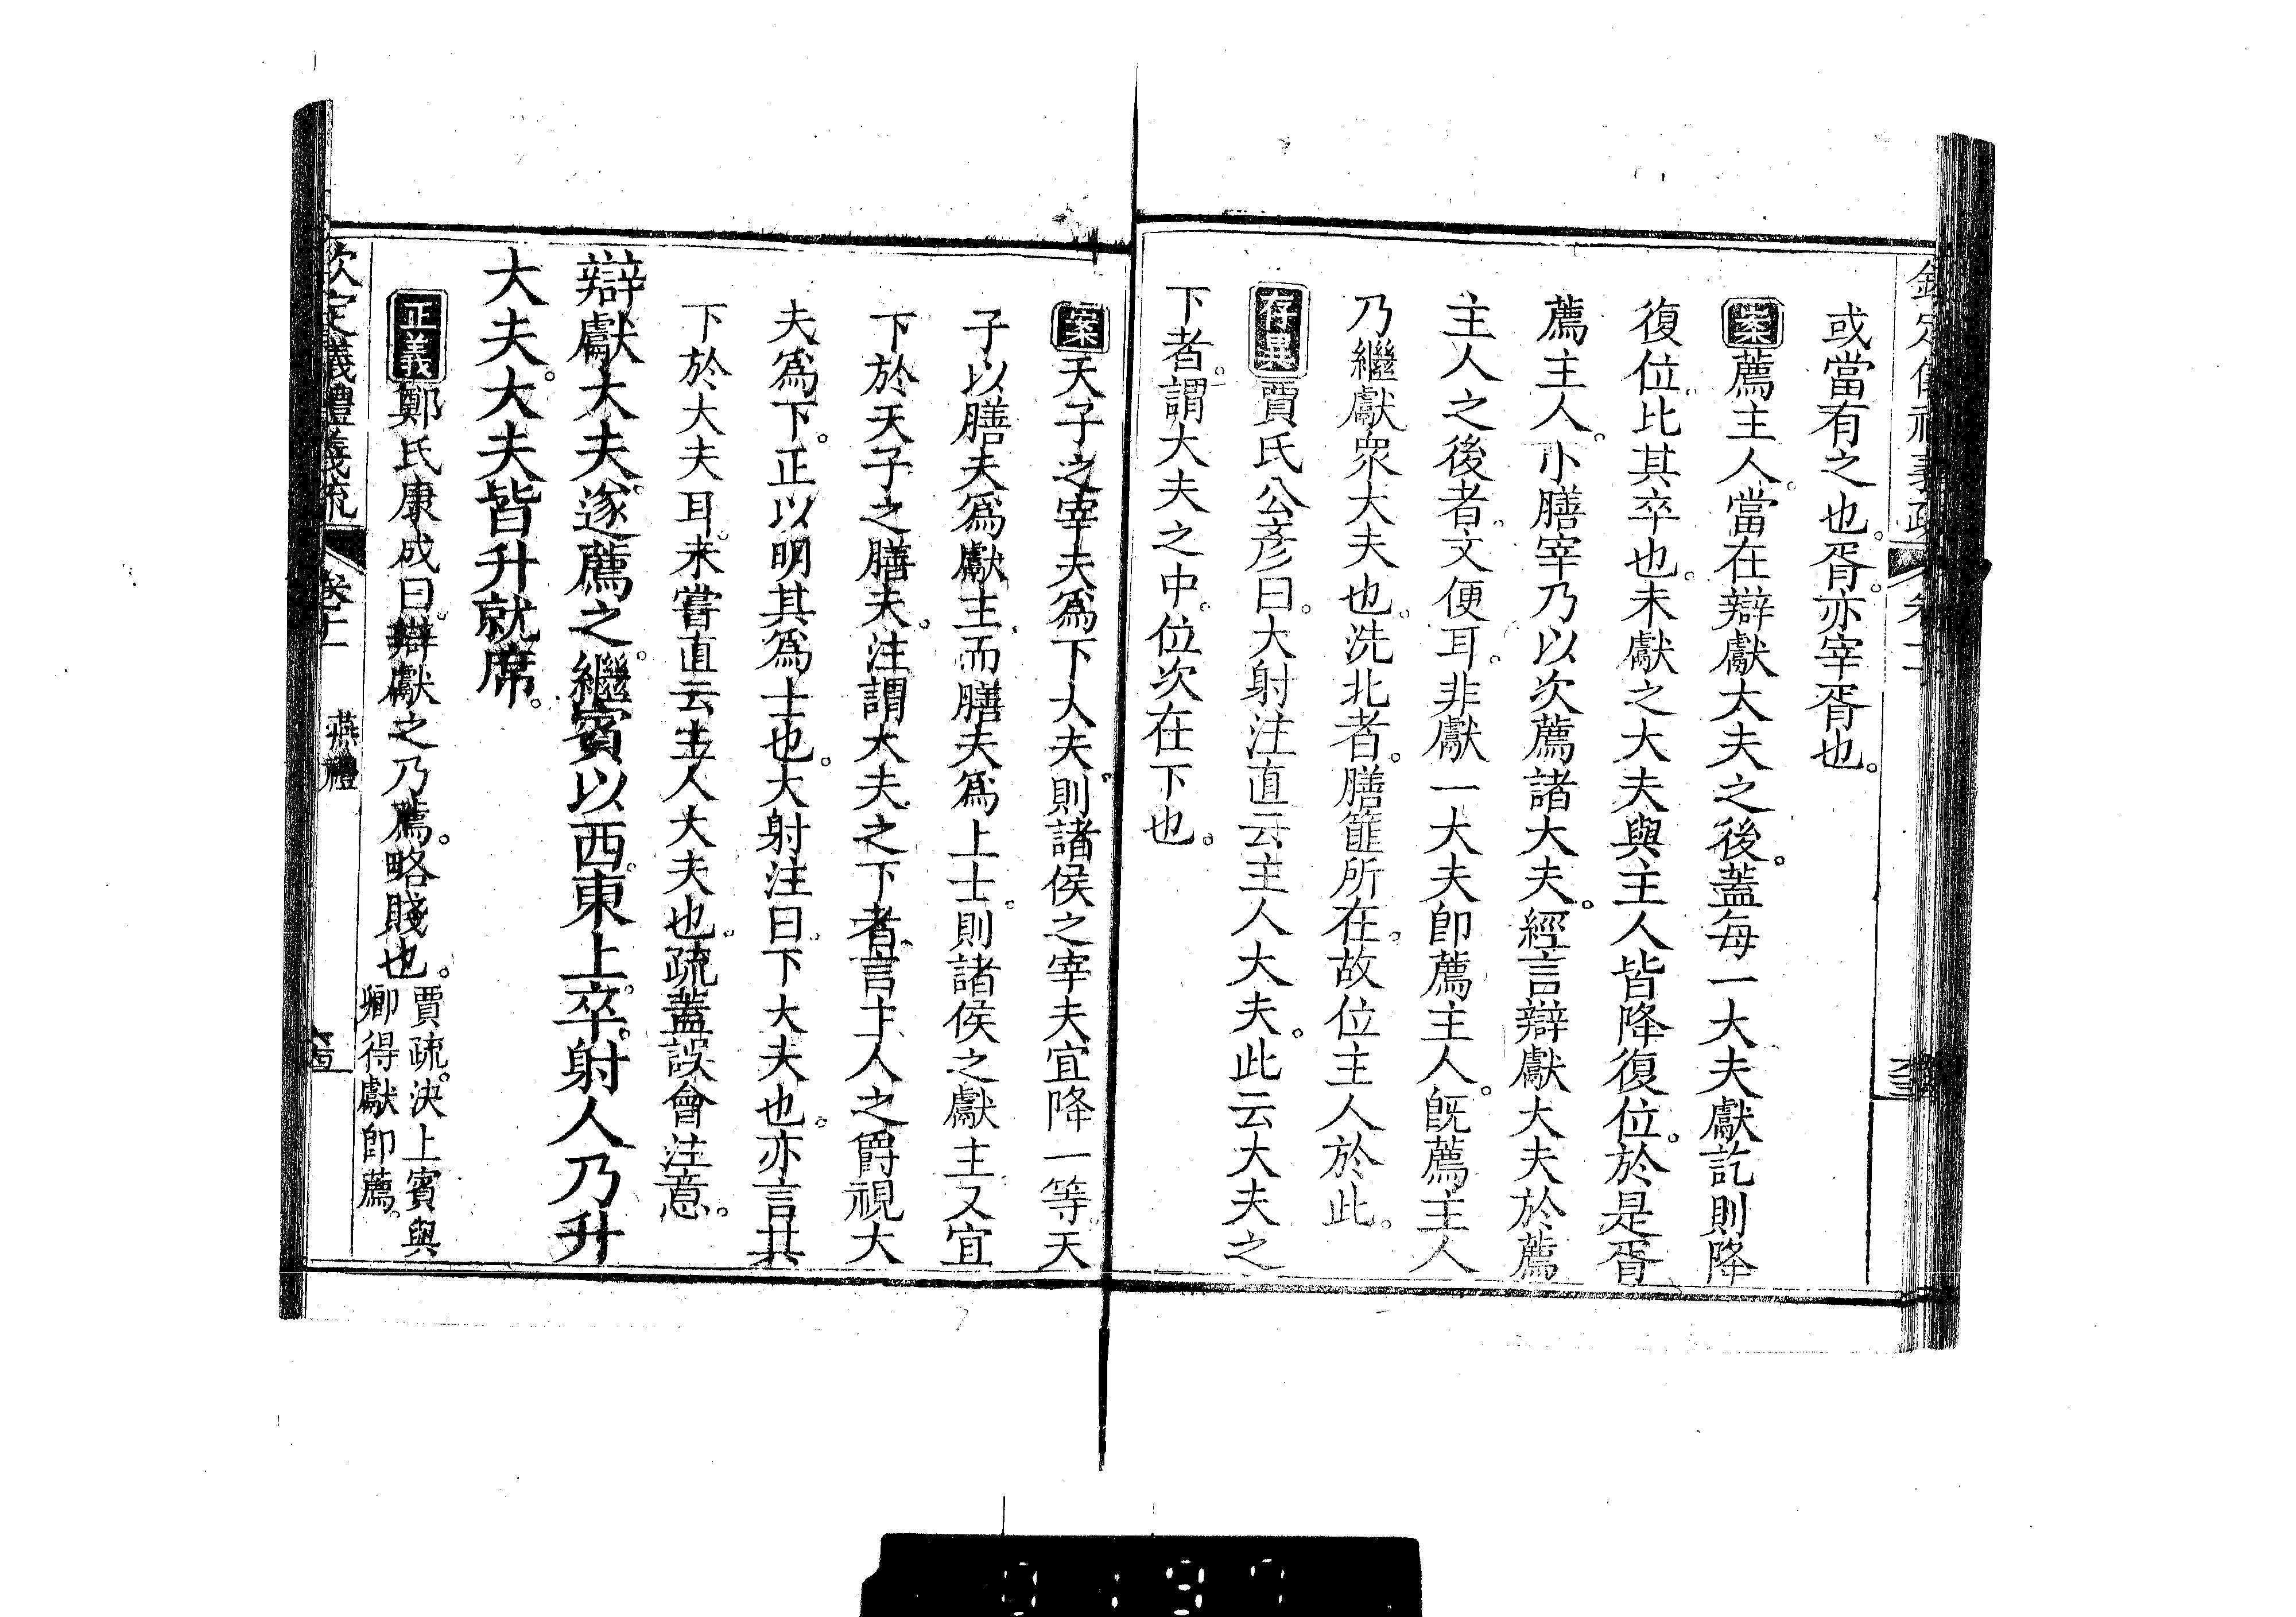 或當有之也。胥。亦宰胥也。
案薦主人。當在辯獻大夫之後。蓋每一大夫獻訖則降
復位。比其卒也。未獻之大夫與主人皆降復位。於是胥
薦主人。小膳宰乃以次薦諸大夫。經言辯獻大夫於薦
主人之後者。文便耳。非獻一大夫卽薦主人。旣薦主人
乃繼獻衆大夫也。洗北者。膳篚所在。故位主人於此。
存異賈氏公彥曰。大射注直云主人大夫。此云大夫之
下者。謂大夫之中。位次在下也。
案天子之宰夫爲下大夫。則諸侯之宰夫宜降一等。天
子以膳夫爲獻主。而膳夫爲上士。則諸侯之獻主。又宜
下於天子之膳夫。注謂大夫之下者。言主人之爵視大
夫爲下。正以明其爲士也。大射注曰。下大夫也。亦言其
下於大夫耳。未嘗直云主人大夫也。疏蓋誤會注意。
辯獻大夫。遂薦之。繼賓以西。東上。卒。射人乃升
大夫。大夫皆升就席。
正義鄭氏康成曰。辯獻之乃薦。略賤也。賈疏。決上賓與
卿得獻卽薦。
欽定儀禮義疏 卷十一 燕禮